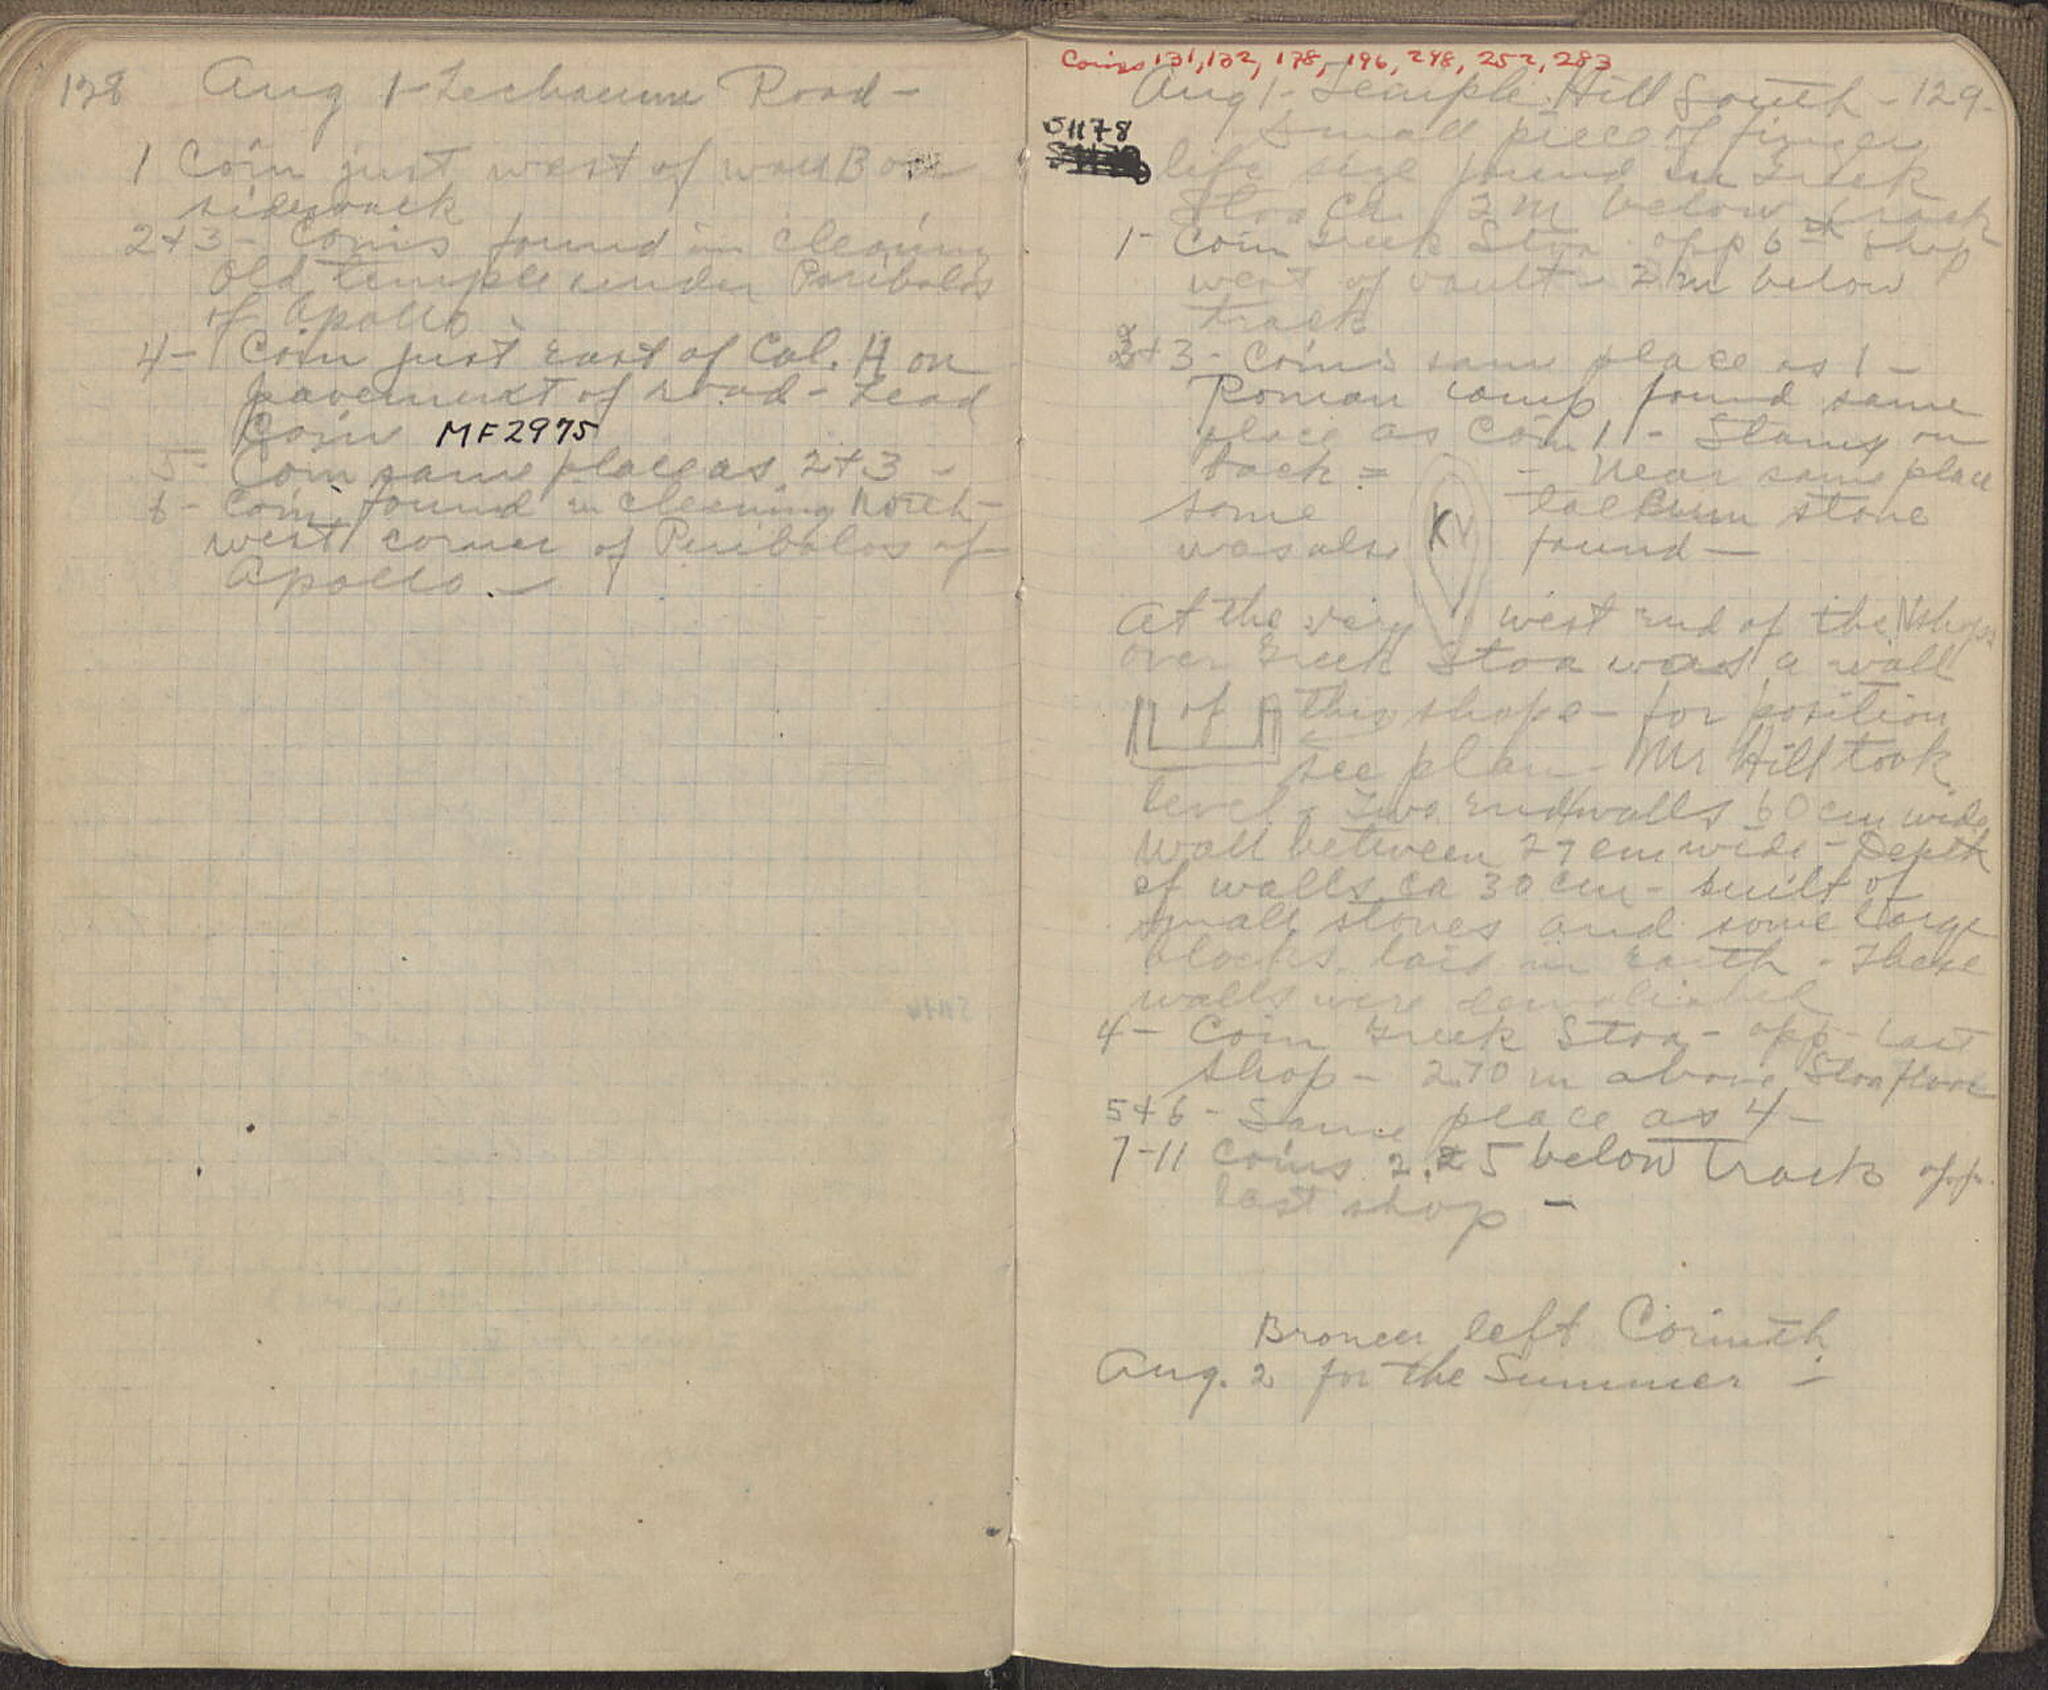 128 Aug 1 - Lechaeum Road -
1 Coin just west of wall B on
sidewalk
2+3 - Coins found in cleaning
old temple under Peribolos
of Apollo -
4 - Coin just east of Col. H on
pavement of road - Lead
Coin MF2975
5 - Coin same place as 2+3 -
6 - Coin found in cleaning North-
west corner of Peribolos of
Apollo. -
Coins 131, 132, 178, 196, 248, 252, 283
Aug 1 - Temple Hill South - 129 -
S1178
Small piece of finger
life size found in Greek
Stoa ca. 2 m below track
1 - Coin Greek Stoa opp 6th shop
west of vault - 2 m below
track
2+3 - Coins same place as 1 -
Roman lamp found same
place as Coin 1 - Stamp on
back = - Near same place
some talcum stone
was also found -
K
At the very west end of the N shops
over Greek Stoa was a wall
of this shape - for position
see plan - Mr Hill took
level - Two end walls 60 cm wide
Wall between 27 cm wide - Depth
of walls ca 30 cm - built of
small stones and some large
blocks laid in earth - These
walls were demolished
4 - Coin Greek Stoa - opp - last
shop - 2.70 m above Stoa floor
5+6 - Same place as 4 -
7-11 Coins 2.25 below track opp.
last shop -
Broneer left Corinth
Aug. 2 for the Summer -